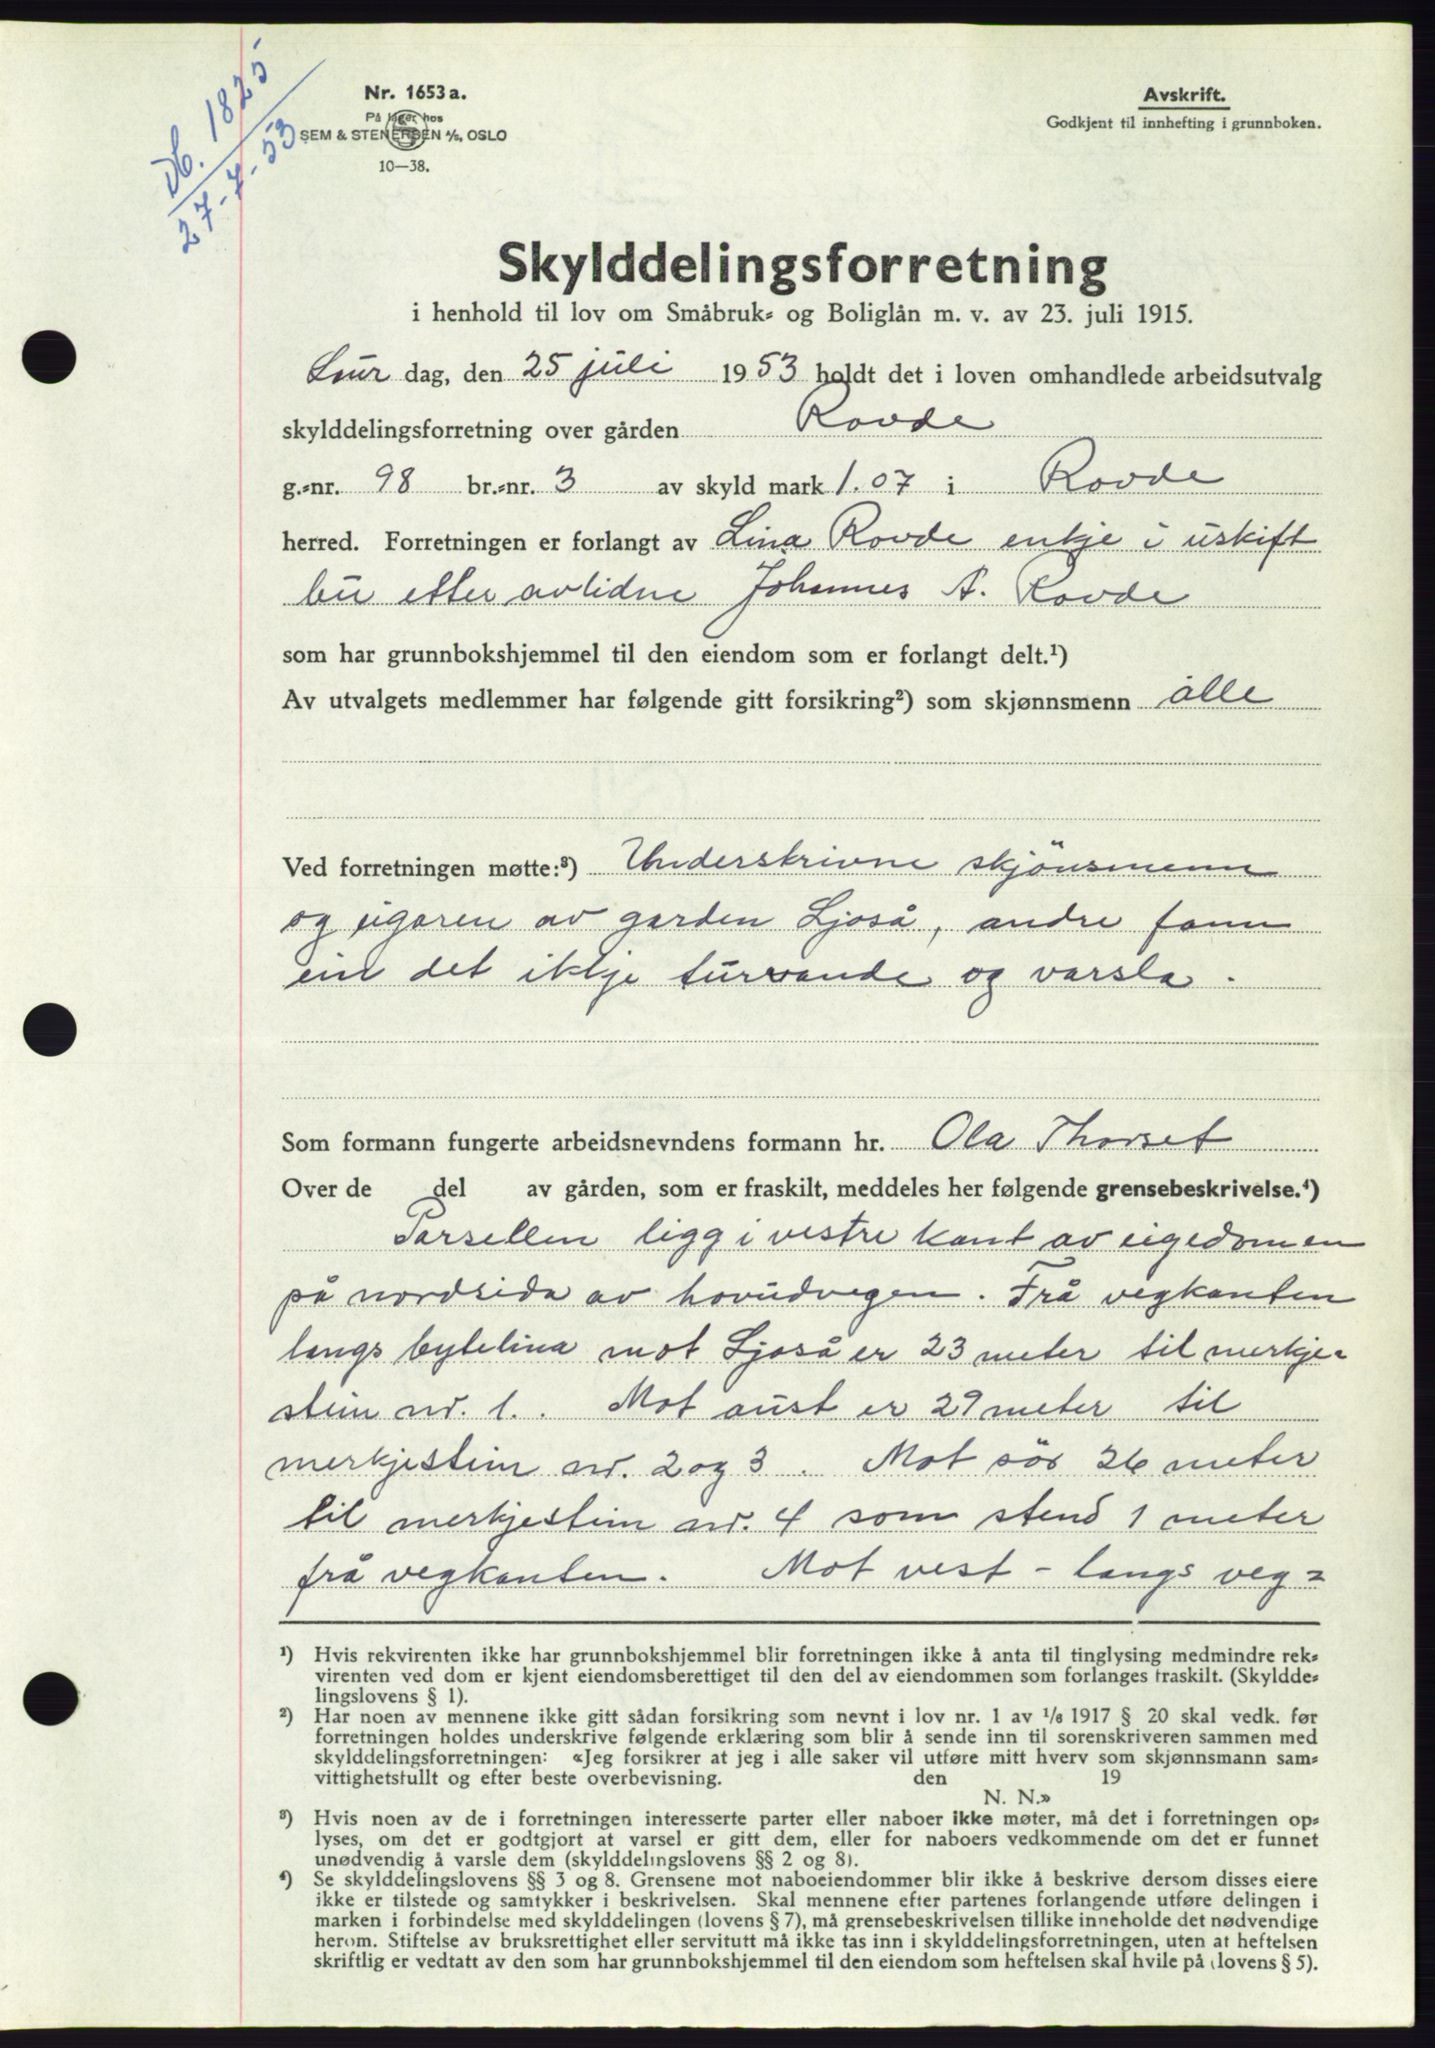 Db. 1825
27-7-53
Nr. 1653 a.
På lager hos
SEM & STENERSEN A/S, OSLO
10—38.
Avskrift.
Godkjent til innhefting i grunnboken.
Skylddelingsforretning
i henhold til lov om Småbruk- og Boliglån m. v. av 23. juli 1915.
Laur dag, den 25 juli 1953 holdt det i loven omhandlede arbeidsutvalg
skylddelingsforretning over gården Rovde
g.-nr. 98 br.-nr. 3 av skyld mark 1.07 i Rovde
herred. Forretningen er forlangt av Lina Rovde enkje i uskift
bu etter avlidne Johannes A. Rovde
som har grunnbokshjemmel til den eiendom som er forlangt delt.¹)
Av utvalgets medlemmer har følgende gitt forsikring²) som skjønnsmenn alle
Ved forretningen møtte:³) Underskrivne skjönsmenn
og eigaren av garden Ljoså, andre fann
ein det ikkje turvande og varsla.
Som formann fungerte arbeidsnevndens formann hr. Ola Thorset
Over de del av gården, som er fraskilt, meddeles her følgende grensebeskrivelse.⁴)
Parsellen ligg i vestre kant av eigedomen
på nordsida av hovudvegen. Frå vegkanten
langs bytelina mot Ljoså er 23 meter til merkje-
stein nr. 1. Mot aust er 29 meter til
merkjestein nr. 2 og 3. Mot sör 26 meter
til merkjestein nr. 4 som stend 1 meter
frå vegkanten. Mot vest - langs veg-
¹) Hvis rekvirenten ikke har grunnbokshjemmel blir forretningen ikke å anta til tinglysing medmindre rek-
virenten ved dom er kjent eiendomsberettiget til den del av eiendommen som forlanges fraskilt. (Skyldde-
lingslovens § 1).
²) Har noen av mennene ikke gitt sådan forsikring som nevnt i lov nr. 1 av 1/6 1917 § 20 skal vedk. før
forretningen holdes underskrive følgende erklæring som blir å sende inn til sorenskriveren sammen med
skylddelingsforretningen: «Jeg forsikrer at jeg i alle saker vil utføre mitt hverv som skjønnsmann sam-
vittighetsfullt og efter beste overbevisning. den 19
N. N.»
³) Hvis noen av de i forretningen interesserte parter eller naboer ikke møter, må det i forretningen op-
lyses, om det er godtgjort at varsel er gitt dem, eller for naboers vedkommende om det er funnet
unødvendig å varsle dem (skylddelingslovens §§ 2 og 8).
⁴) Se skylddelingslovens §§ 3 og 8. Grensene mot naboeiendommer blir ikke å beskrive dersom disses eiere
ikke er tilstede og samtykker i beskrivelsen. Skal mennene efter partenes forlangende utføre delingen i
marken i forbindelse med skylddelingen (lovens § 7), må grensebeskrivelsen tillike inneholde det nødvendige
herom. Stiftelse av bruksrettighet eller servitutt må ikke tas inn i skylddelingsforretningen, uten at heftelsen
skriftlig er vedtatt av den som har grunnbokshjemmel til den eiendom som heftelsen skal hvile på (lovens § 5).